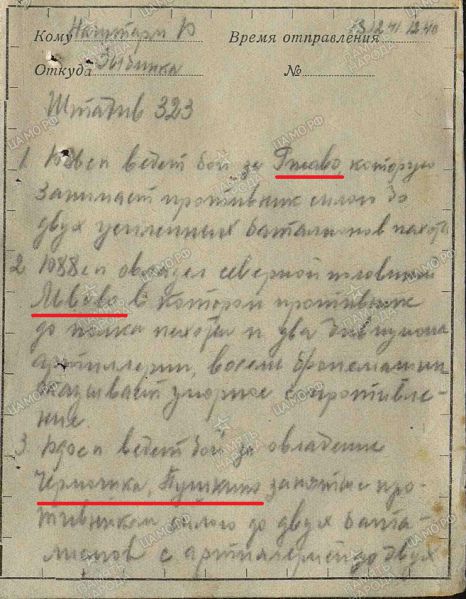 Кому Наштарм 10 Время отправления 13 12 41 12.40
Откуда Рыбинка №
Штадив 323
1. 1086 сп ведет бой за Гтаво, которую
занимает противник силою до
двух усиленных батальонов пехоты
2. 1088 сп овладел северной половиной
Львово в котором противник
до полка пехоты и два дивизиона
артиллерии, восемь бронемашин
оказывает упорное сопротивле-
ние.
3. 1090 сп ведет бой за овладение
Чермошка, Пушкино занятые про-
тивником силою до двух бата-
лионов с артиллерией до двух